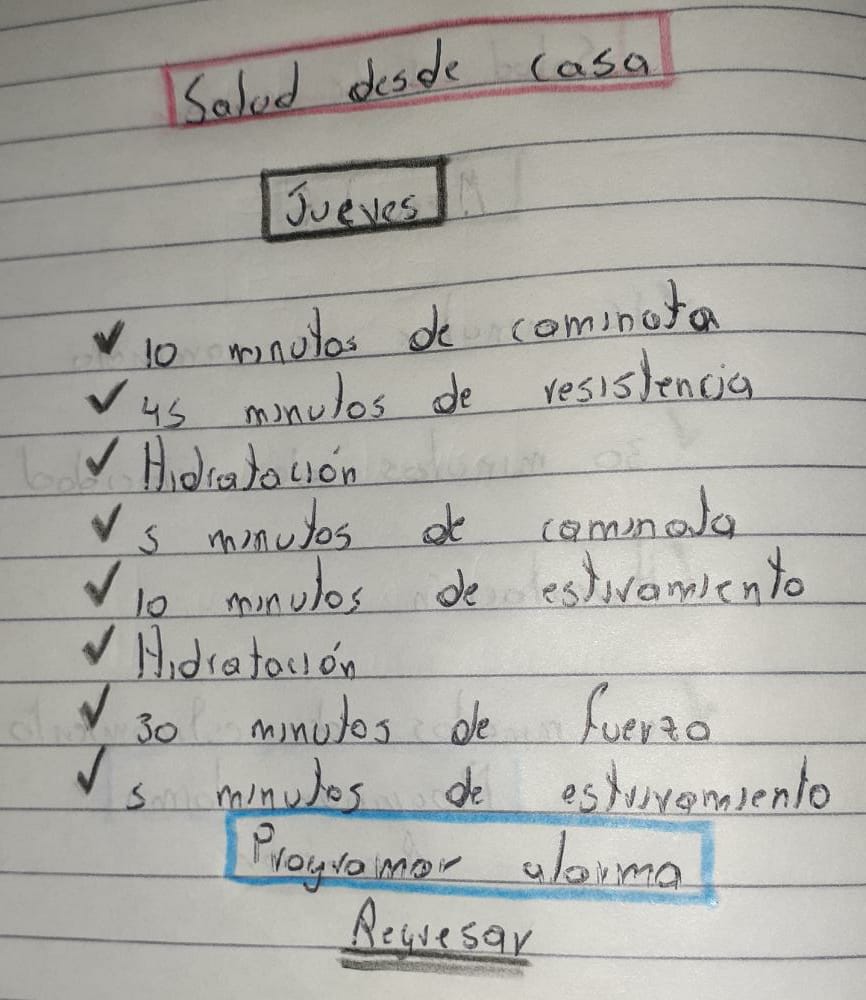 Salud desde casa
Jueves
✓ 10 minutos de caminata
✓ 45 minutos de resistencia
✓ Hidratación
✓ 5 minutos de caminata
✓ 10 minutos de estiramiento
✓ Hidratación
✓ 30 minutos de fuerza
✓ 5 minutos de estiramiento
Programar alarma
Regresar